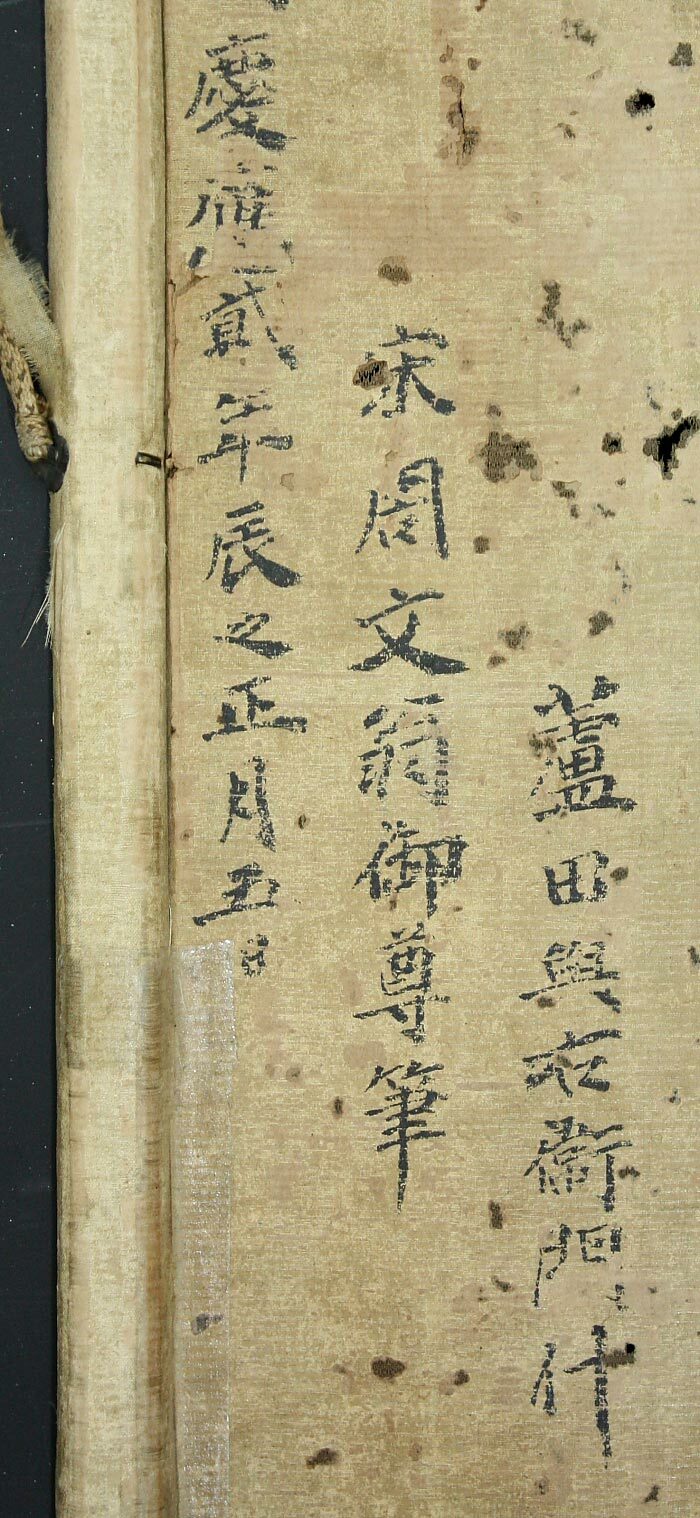 蘆田與右衛門什
宋周文翁御尊筆
慶應貳年辰之正月五日